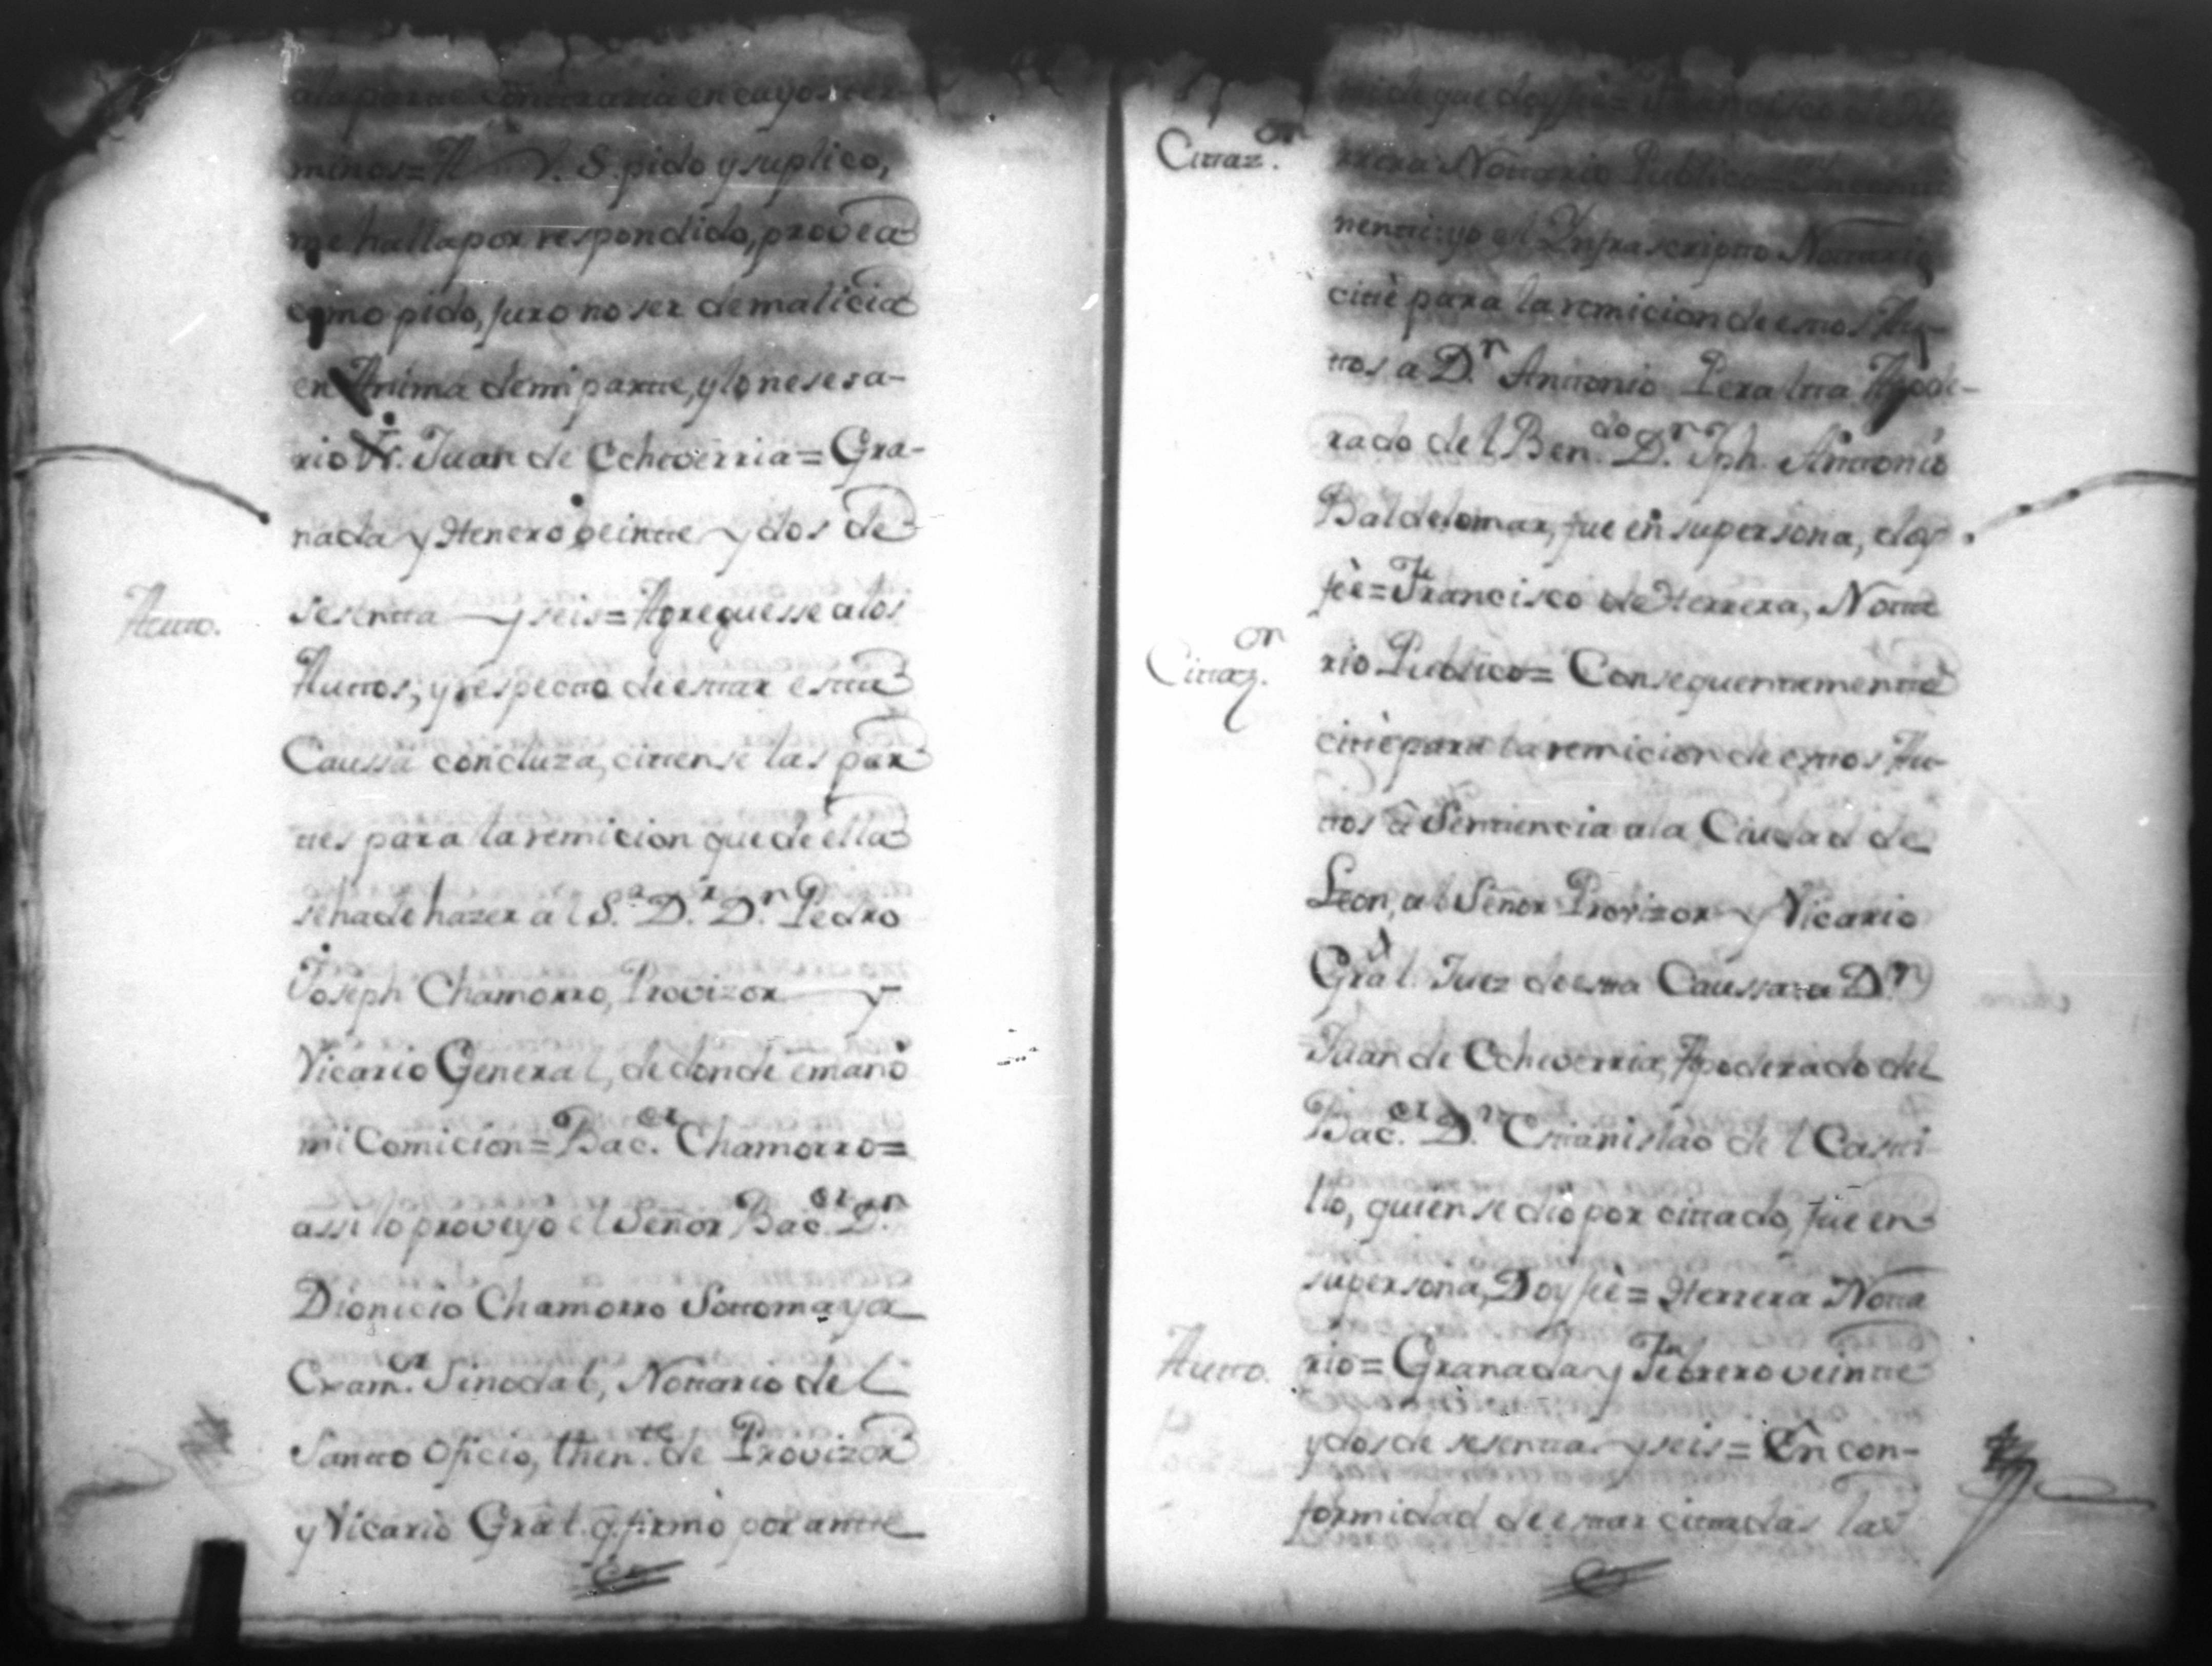 ala parte contraria en cuyos ter-
minos= A V. S. pido y suplico,
me halla por respondido, provea
como pido, juro no ser de malicia
en Anima de mi parte, y lo nesesa-
rio Vt. Juan de Echeverria= Gra-
nada y Henero veinte y dos de
Autto.
sesentta y seis= Agreguesse alos
Auttos; y respecto de estar estta
Caussa concluza, cittense las par
ttes para la remicion que de ella
se ha de hazer al S.r D.r D.n Pedro
Joseph Chamorro, Provizor y
Vicario General, de donde emanó
mi Comicion= Bac.er Chamorro=
assi lo proveyo el Señor Bac.er D.n
Dionicio Chamorro Sottomayor
Exam.or Sinodal, Nottario del
Santto Oficio, then.te de Provizor
y Vicario Gral. q firmó por antte
mi de que doy feè= Francisco de He
Cittaz.on
rrera Nottario Publico= Inconti
nentti yo el Infrascriptto Nottario
cittè para la remicion de esttos Au-
ttos a D.n Anttonio Peraltta Apode-
rado del Ben.do D.n Jph. Anttonio
Baldelomar, fue en su persona, doy
feè= Francisco de Herrera, Notta
Cittaz.on
rio Publico= Conseguenttementte
cittè para la remicion de esttos Au-
ttos â Senttencia ala Ciudad de
Leon, al Señor Provizor y Vicario
Gral. Juez de estta Caussa= a D.n
Juan de Echeverria, Apoderado del
Bac.er D.n Esttanislao del Castti
llo, quien se dio por cittado, fue en
su persona, Doy feè= Herrera Notta
Autto.
rio= Granada y Febrero veintte
y dos de sesentta y seis= En con-
formidad de estar cittadas las